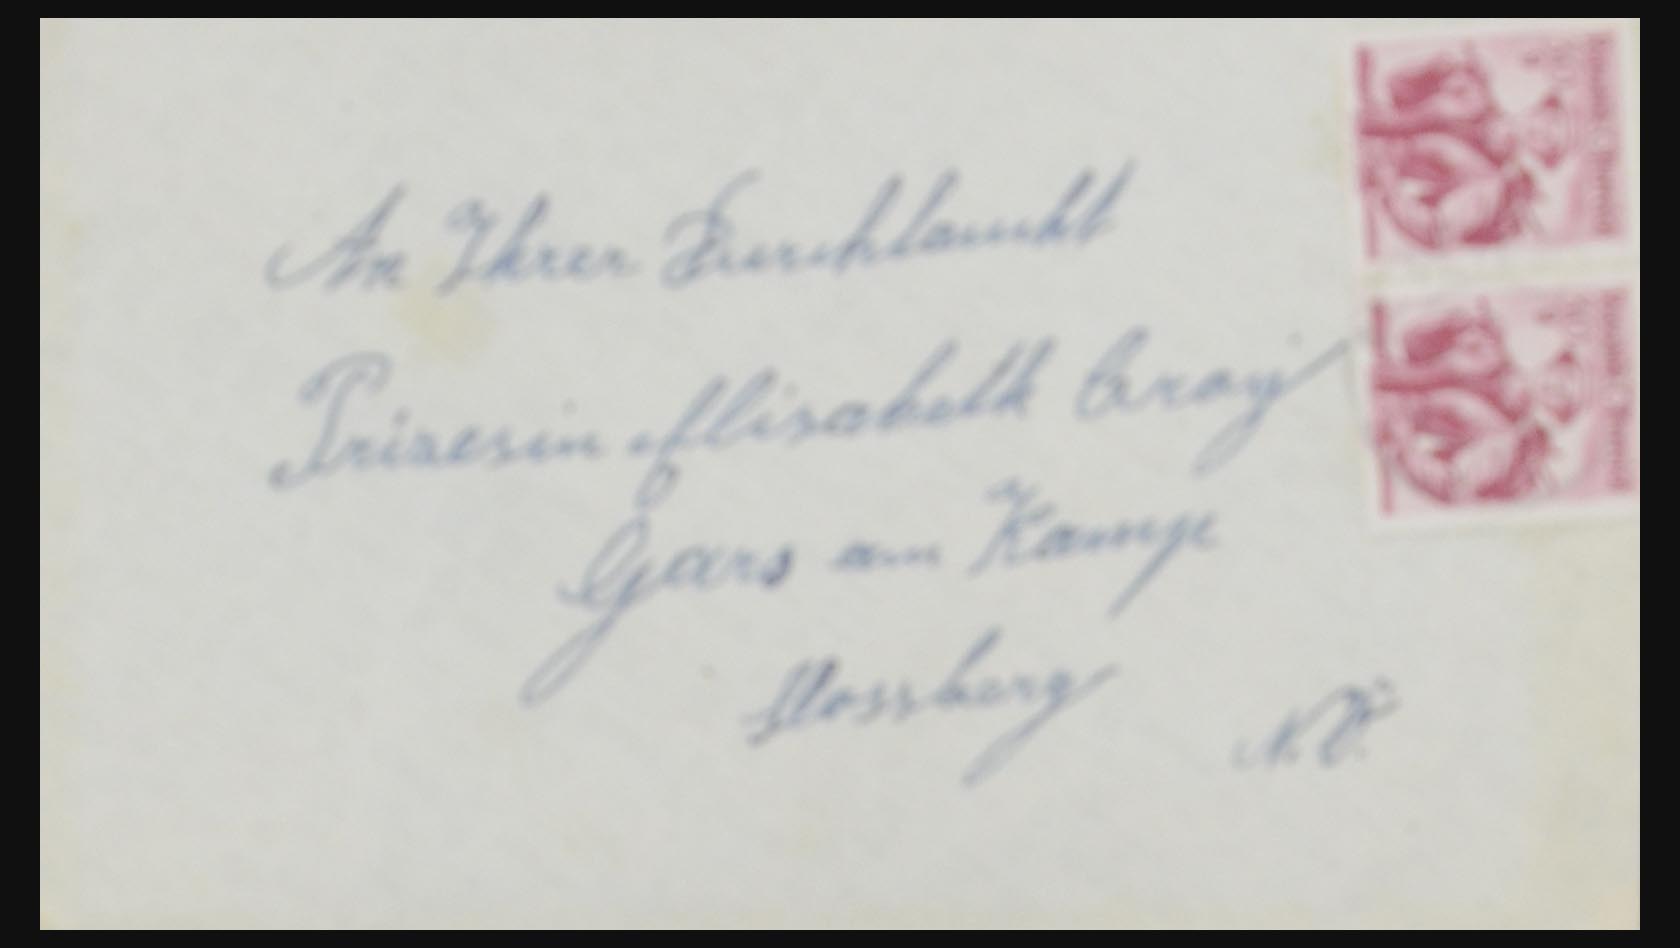 An Ihrer Durchlaucht
Prizesin Elisabeth Croy
Gars am Kamp
N.Ö.